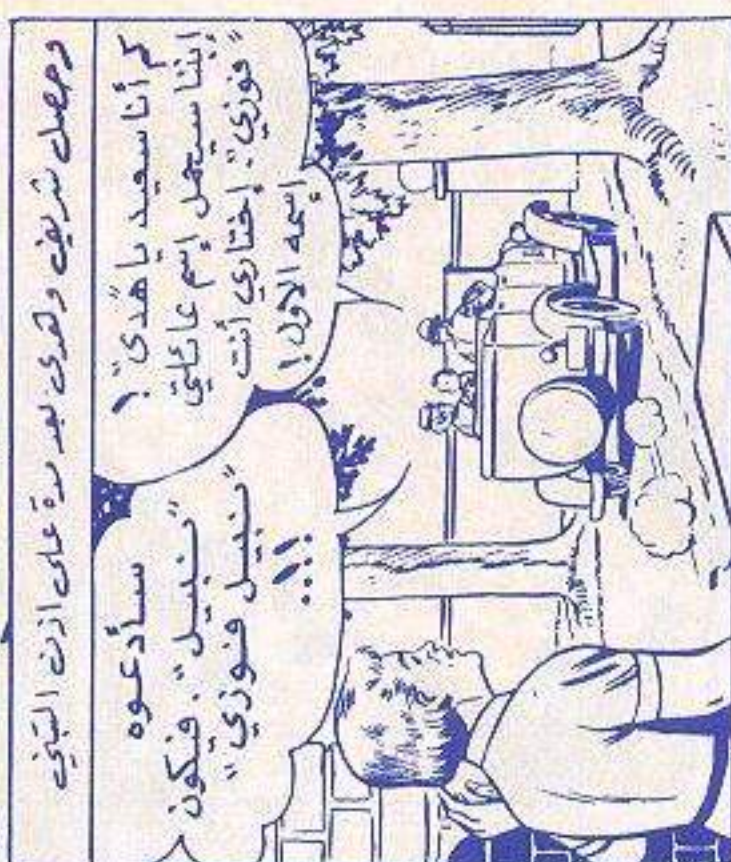 وحصل شريف وهدى بعد مدة على اذن التبني
كم أنا سعيد يا هدى"!
إبننا سيحمل إسم عائلتي
"فوزي". إختاري أنت
إسمه الاول!
سأدعوه
"نبيل". فيكون
"نبيل فوزي"
...!!